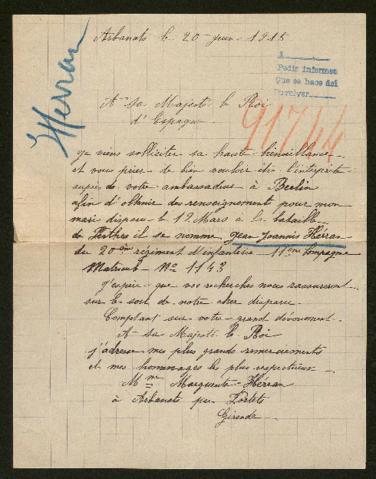 Arbanats le 20 juin 1915
Herran
A
Pedir informes
Que se hace así
Devolver
A sa Majesté le Roi
d'Espagne
91744
je viens solliciter sa haute bienveillance
et vous prier de bien vouloir être l'interprète
auprès de votre ambassadeur à Berlin
afin d'obtenir des renseignements pour mon
mari disparu le 12 Mars à la bataille
de Perthes il se nomme Jean Joannis Herran
du 20ème régiment d'infanterie 11em Compagnie
Matricule No 1143
j'espère que vos recherches nous rassureront
sur le sort de notre cher disparu
Comptant sur votre grand dévouement
A sa Majesté le Roi
j'adresse mes plus grands remerciements
et mes hommages les plus respectueux
Mme Marguerite Herran
à Arbanats par Portets
Gironde